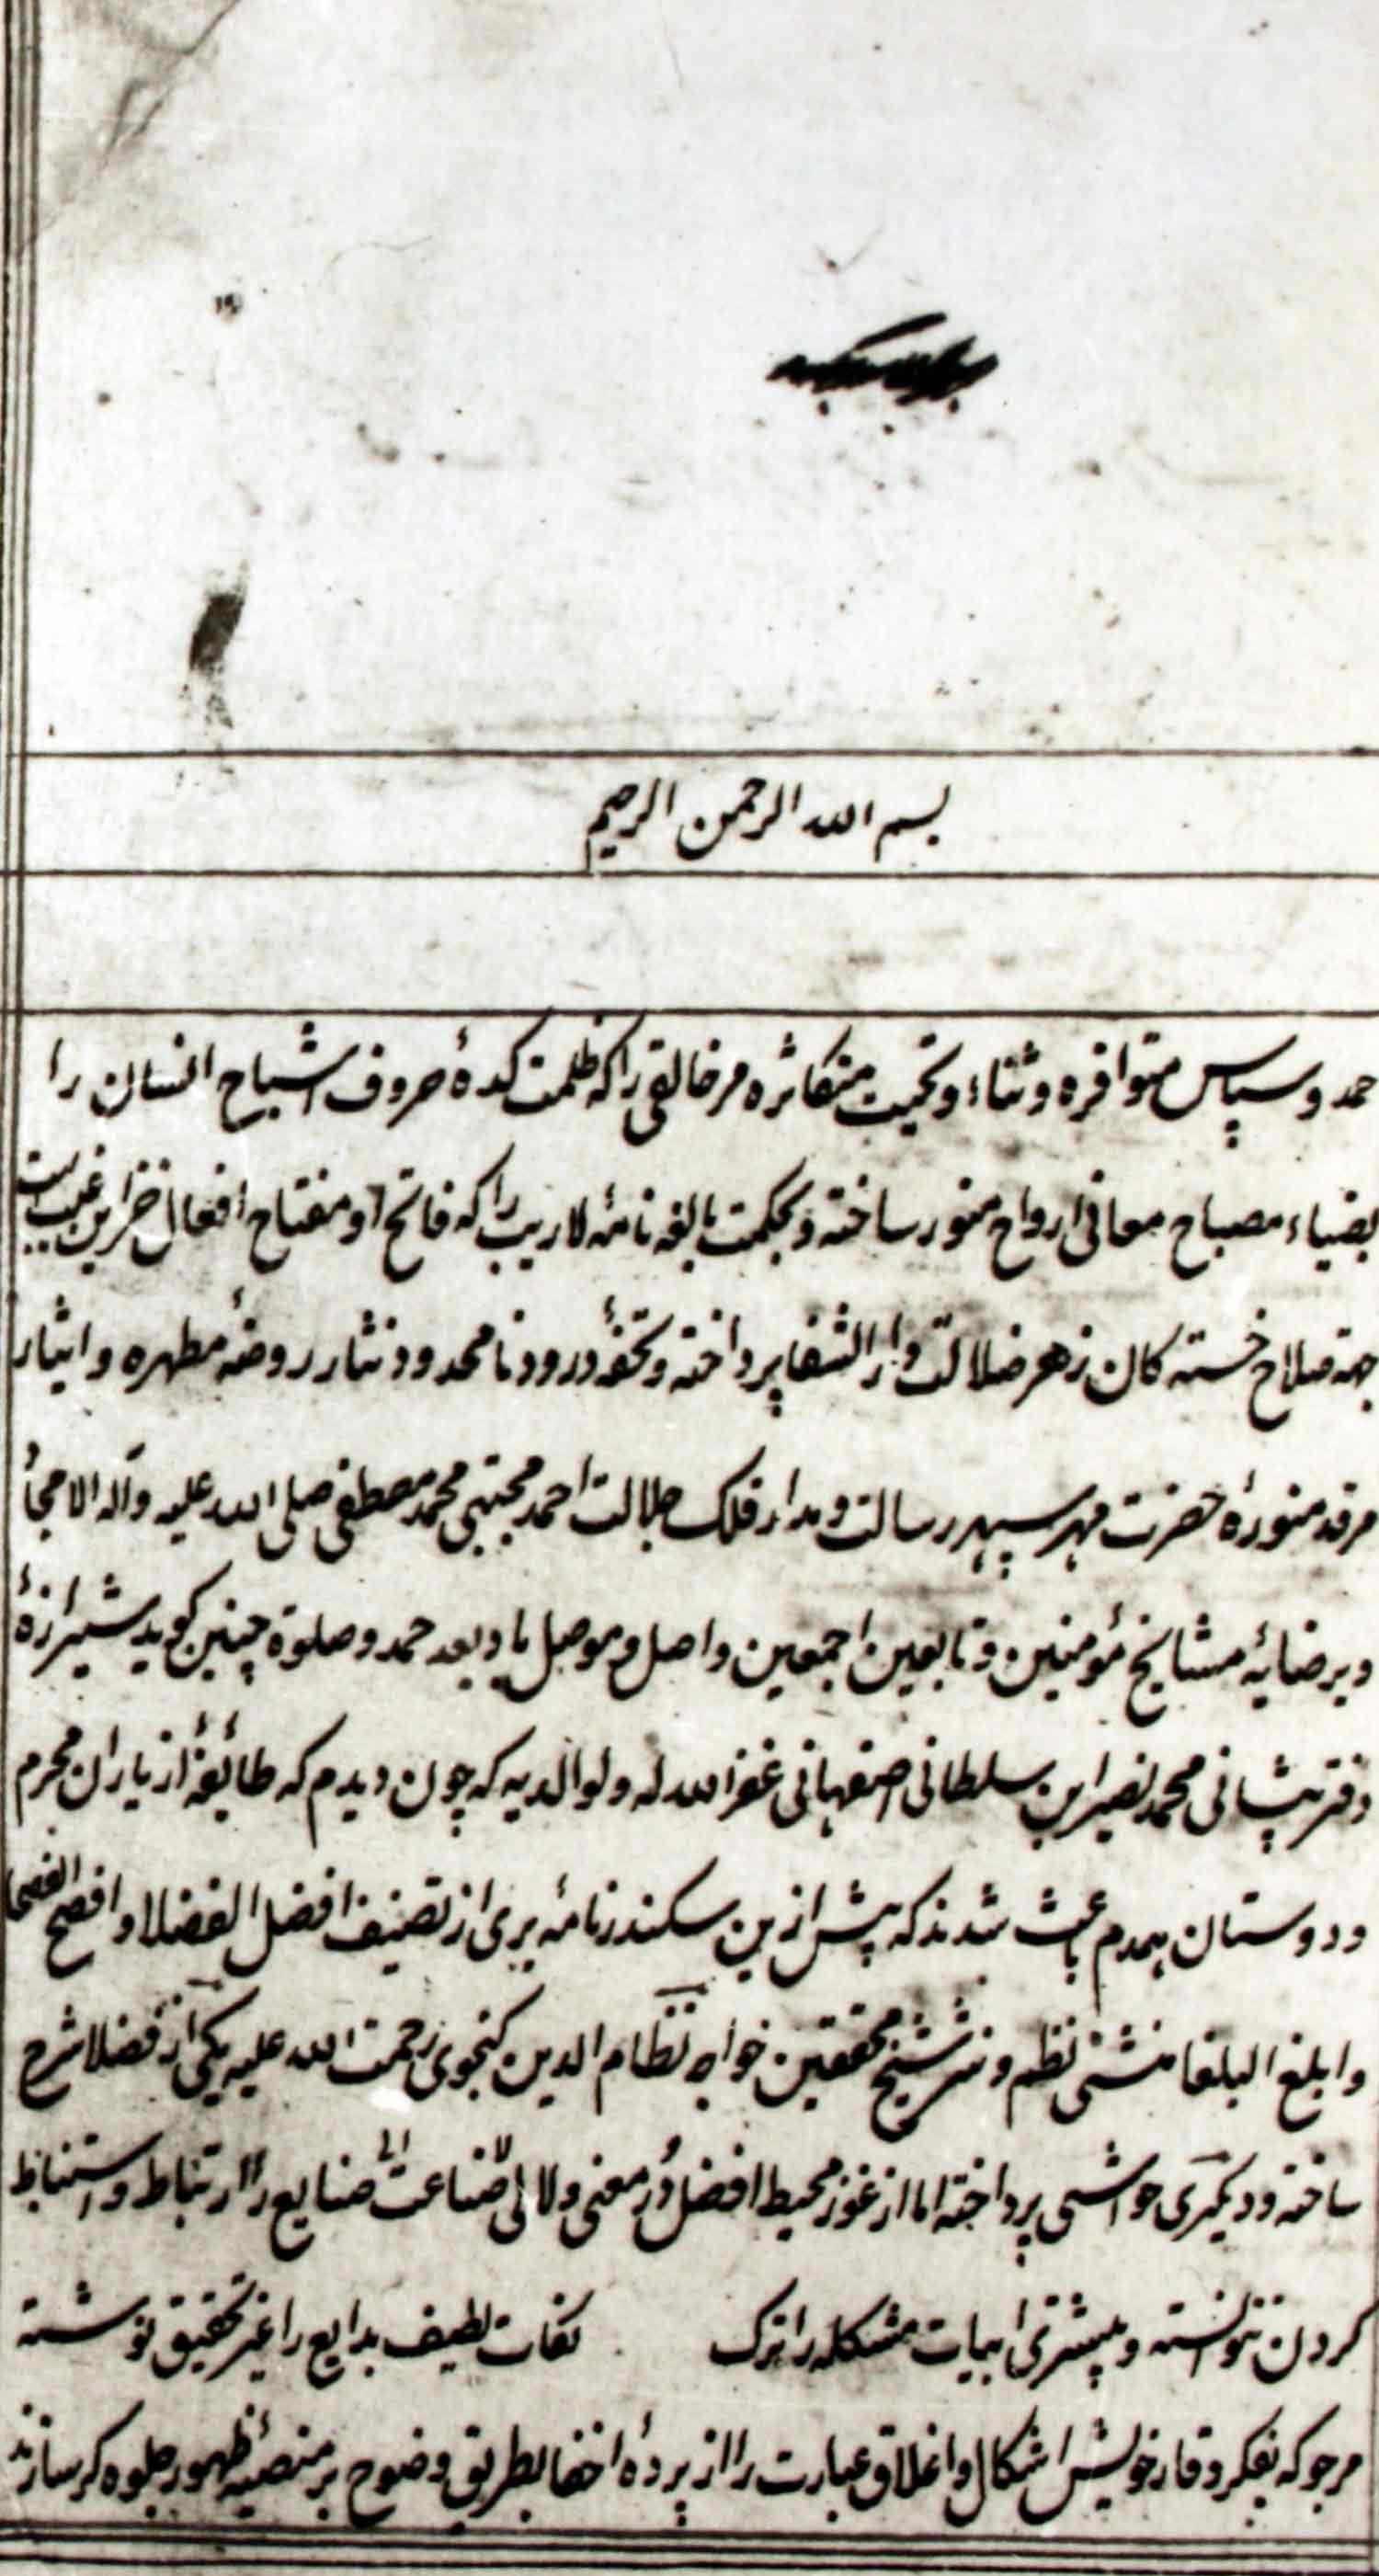 بسم الله الرحمن الرحیم
حمد و سپاس متوافره و ثناء و تحیت متکاثره مر خالقی را که ظلمت کدهٔ حروف اشباح انسان را
بضیاء مصباح معانی ارواح منور ساخته و بحکمت بالغه نامهٔ لاریب را که فاتح او مفتاح اقفال خزاین غیب است
جهة صلاح خسته کان زهر ضلالت دار الشفا پرداخته و تحفهٔ درود نامحدود نثار روضهٔ مطهره و ایثار
مرقد منورهٔ حضرت مهر سپهر رسالت و مدار فلک جلالت احمد مجتبی محمد مصطفی صلی الله علیه و آله الامجاد
و بر ضایهٔ مشایخ مؤمنین و تابعین اجمعین واصل و موصل باد بعد حمد و صلوة چنین کوید شیرازهٔ
دفتر پشانی محمد نصیر ابن سلطانی اصفهانی غفر الله له ولوالدیه که چون دیدم که طائفهٔ از یاران محرم
و دوستان همدم باعث شدند که پیش ازین سکندر نامهٔ بری از تصنیف افضل الفضلا و افصح الفصحا
و ابلغ البلغا منشی نظم و نثر شیخ محققین خواجه نظام الدین کنجوی رحمت الله علیه یکی از فضلا شرح
ساخته و دیکری حواشی پرداخته اما از غور محیط افضل در معنی و لالی صناعت صنایع را ارتباط و استنباط
کردن نتوانسته و پیشتری ابیات مشکله را ترک نکات لطیف بدایع را غیر تحقیق نوشته
مرجو که بفکر وقار خویش اشکال و اغلاق عبارت را از پردهٔ اخفا بطریق وضوح بر منصهٔ ظهور جلوه کر سازند